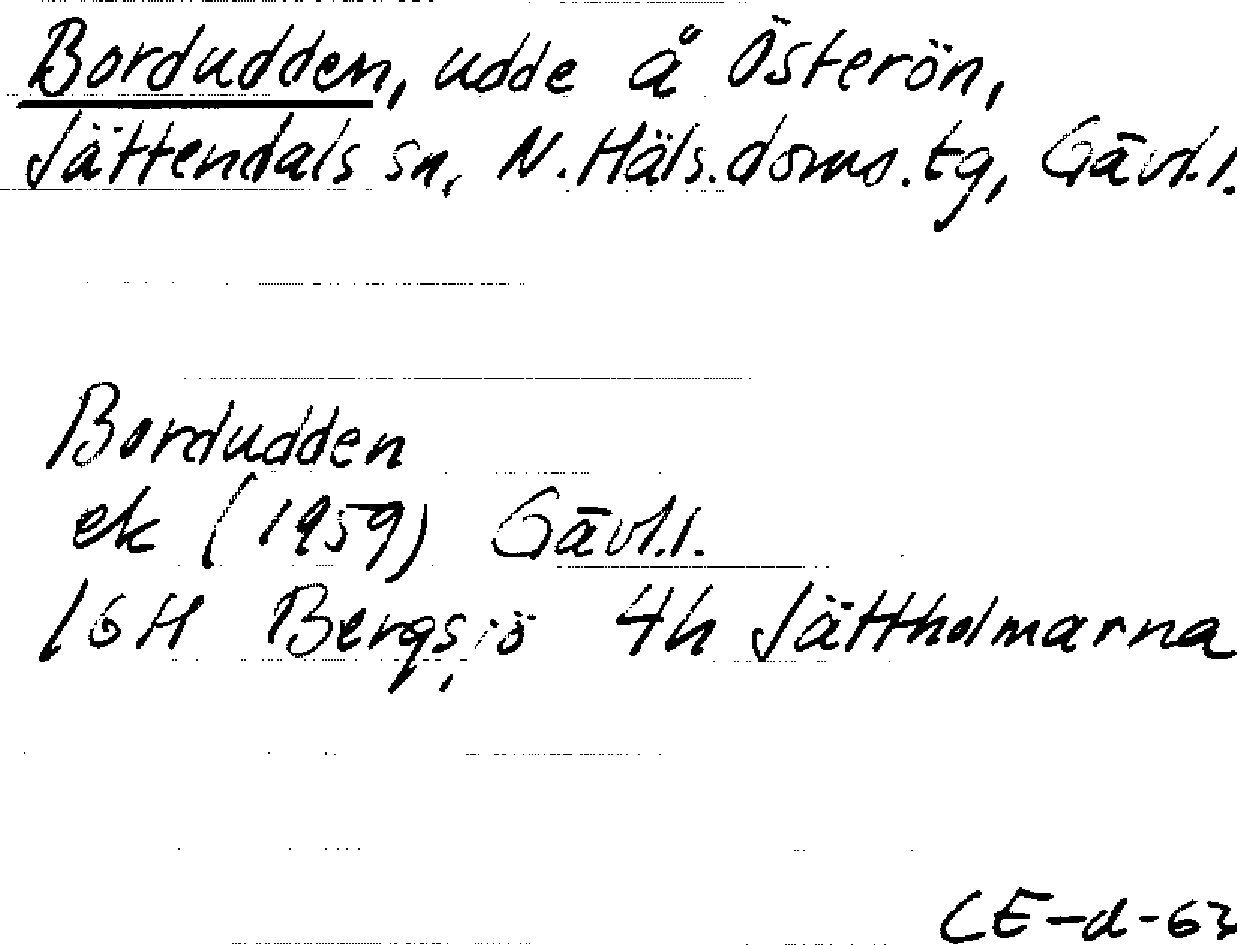 Bordudden, udde å Österön,
Jättendals sn, N. Häls. doms. tg, Gävl.l.
Bordudden
ek (1959) Gävl.l.
16H Bergsjö 4h Jättholmarna
CE-d-63